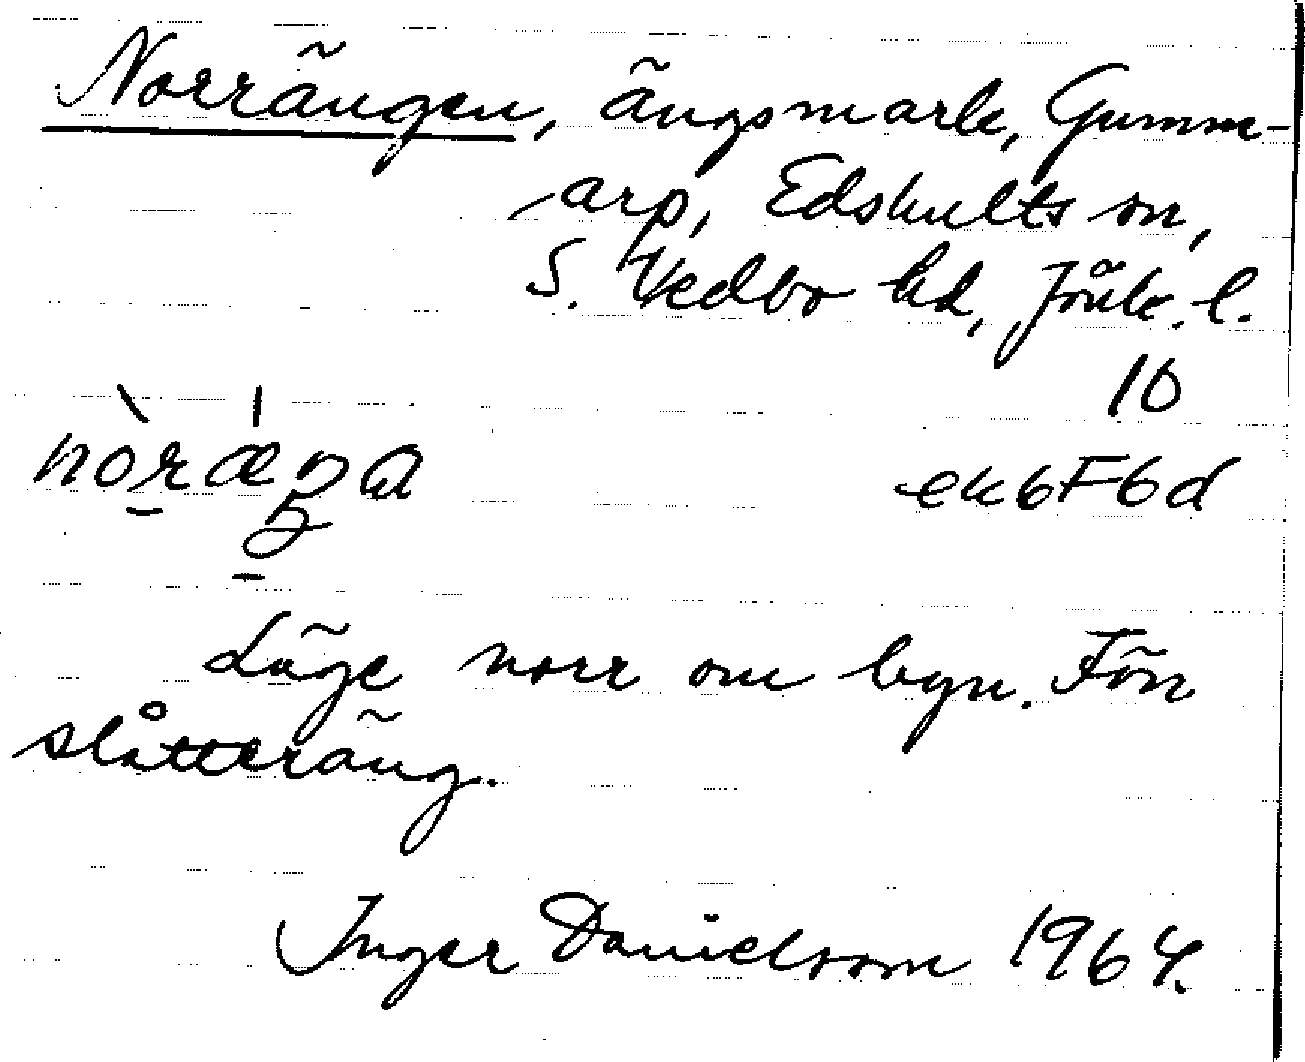 Norrängen, ängsmark, Gumm-
arp, Edshults sn,
S. Vedbo hd, Jönk. l.
10
ek6F6d
Läge norr om byn. Förr
slåtteräng.
Inger Danielsson 1964.